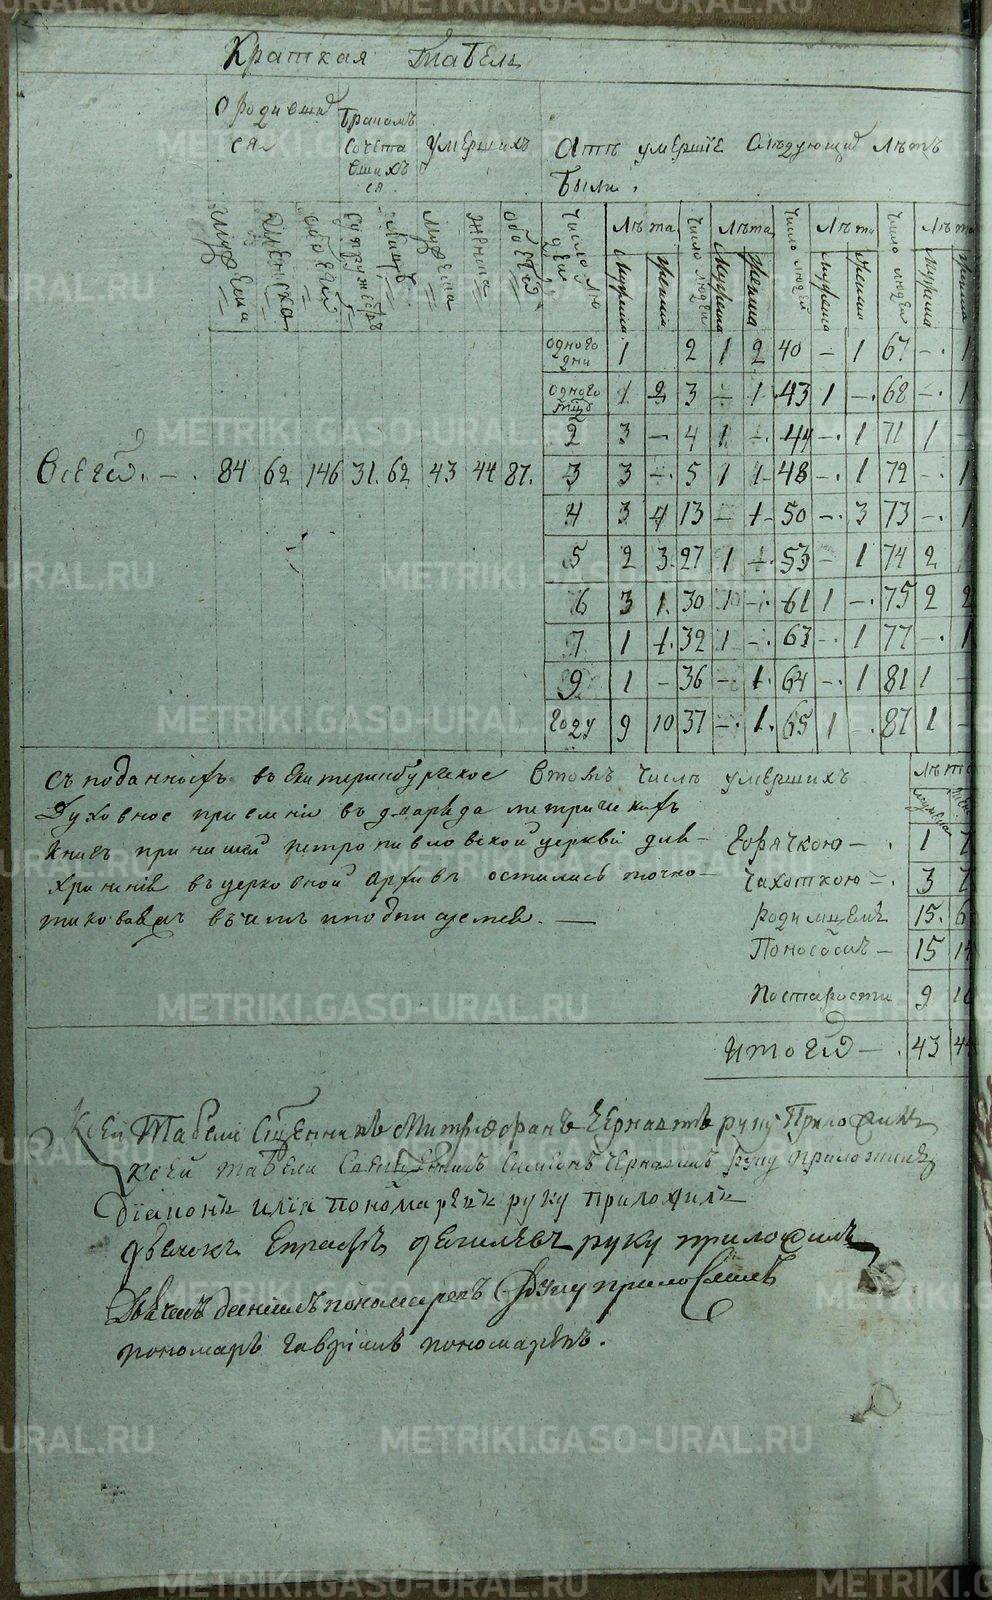 Краткая Табель
О родивших
ся
бракомъ
сочета
вшихъ
ся
умершихъ
Атѣ умершіе слѣдующихъ лѣтъ
были.
Мужеска Женска обоего Супружествъ Лицъ Мужеска Женска Обоего
Число людей Лѣта Число людей Лѣта Число людей Лѣта Число людей Лѣта
Мужеска Женска Мужеска Женска Мужеска Женска Мужеска Женска
одного дни 1 2 1 2 40 – 1 67 – 1
одного мцѣ 1 2 3 – 1 43 1 – 68 – 1
2 3 – 4 1 – 44 – 1 71 1 –
Всего. – 84 62 146 31. 62 43 44 87. 3 3 – 5 1 1 48 – 1 72 – 1
4 3 4 13 – 1 50 – 3 73 – 1
5 2 3 27 1 – 53 – 1 74 2
6 3 1 30 1 – 61 1 – 75 2 2
7 1 1 32 1 – 63 – 1 77 – 1
9 1 – 36 – 1 64 – 1 81 1 –
году 9 10 37 – 1 65 1 – 87 1 –
съ поданныхъ въ Екатеринбургское
Духовное правленіе метрическихъ
книгъ Петропавловской церкви для
храненія въ церковной Архивѣ остались точно
таковаяжъ в чемъ и подписуемся. –
Втомъ числѣ умершихъ Лѣта
мужеска
Горячкою – 1
Чахоткою – 3
родимцемъ 15. 6
Поносомъ – 15 14
По старости 9
Итого – 43 44
Ксей Табели Священникъ Митрофанъ Чернавинъ руку Приложилъ
Ксей табели Священникъ Симеонъ Чернавинъ руку приложилъ
Діаконъ Илія Пономаревъ руку приложилъ
дьячокъ руку приложилъ
Дьячекъ пономаревъ руку приложилъ
пономарь Гавріилъ пономаревъ.
METRIKI.GASO-URAL.RU